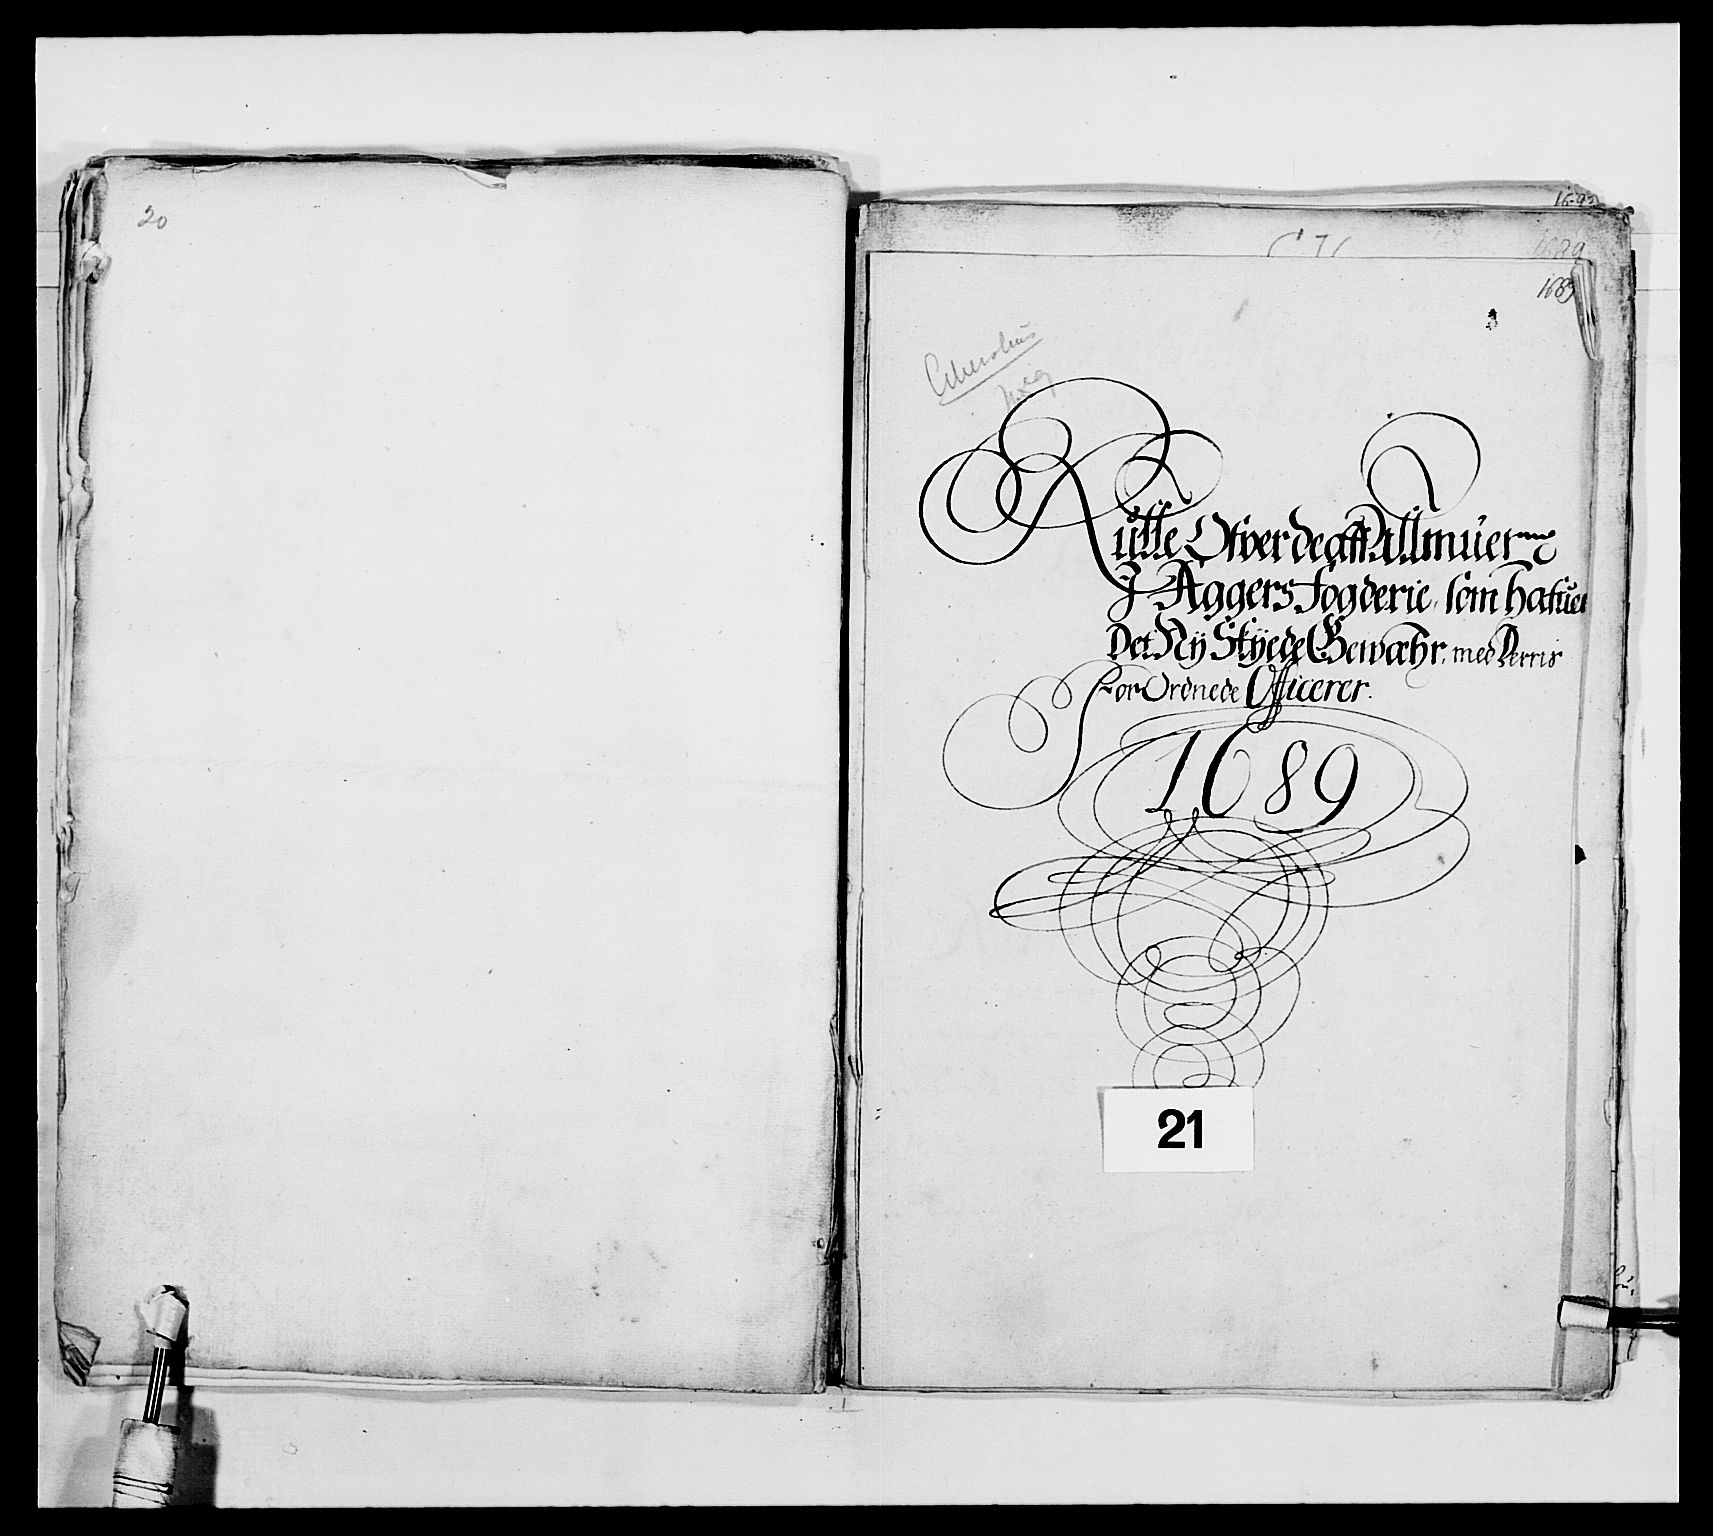 20
1689
1689
Akershus
Rulle Ofver de aff Allmuerne
J Aggers fogderie, som hafuer
Det Nÿ Skÿede Gewæhr, med Derris
ForOrdnede Officerer.
1689
21